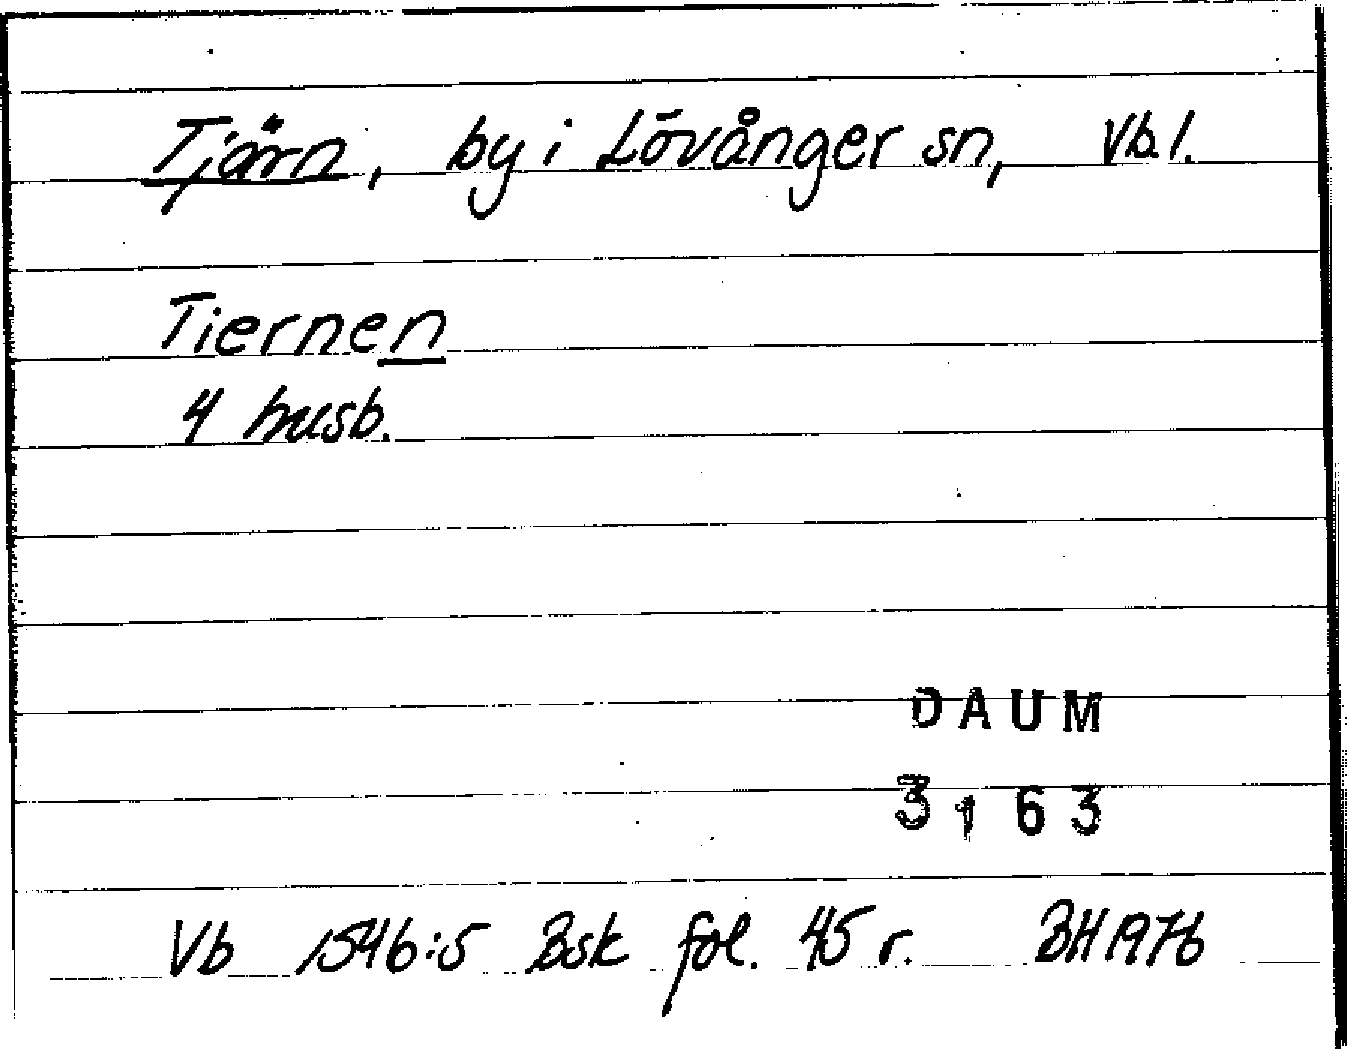 Tjärn, by i Lövånger sn, Vb l.
Tiernen
4 husb.
DAUM
3163
Vb 1546:5 Bsk fol. 45 r. BH 1976